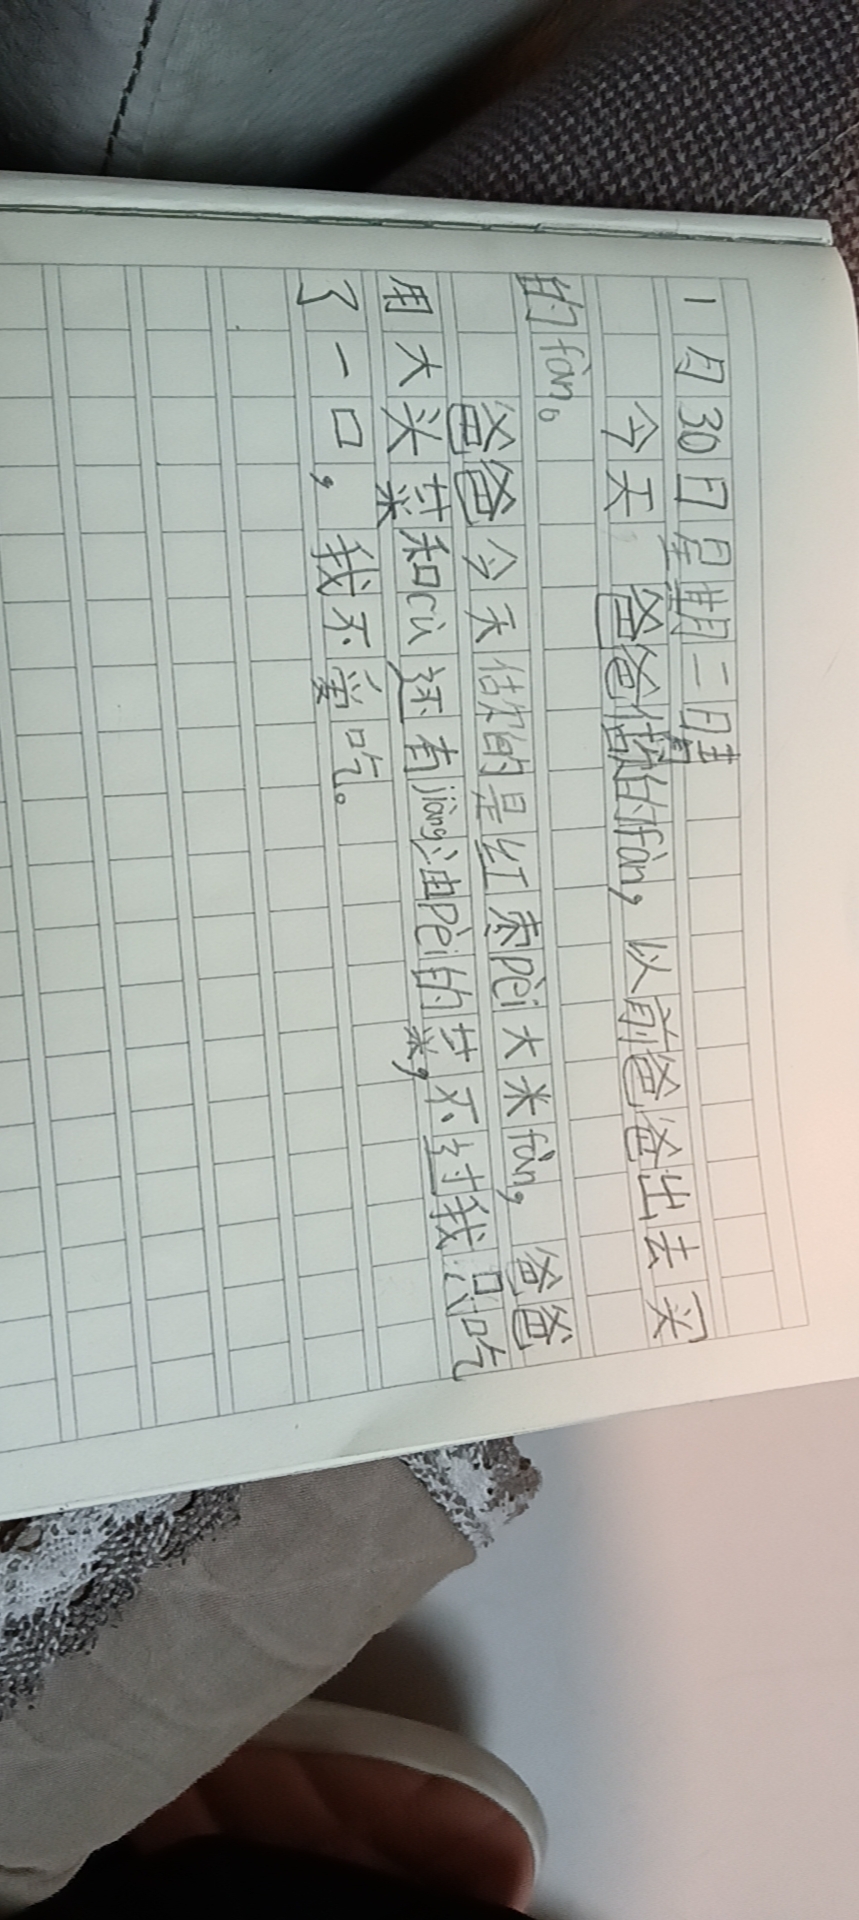 1月30日星期二晴
今天爸爸做的fàn，以前爸爸出去买
的fàn。
爸爸今天做的是红枣pèi大米fàn，爸爸
用大头菜和cù还有jiàng油pèi的菜，不过我只吃
了一口，我不爱吃。